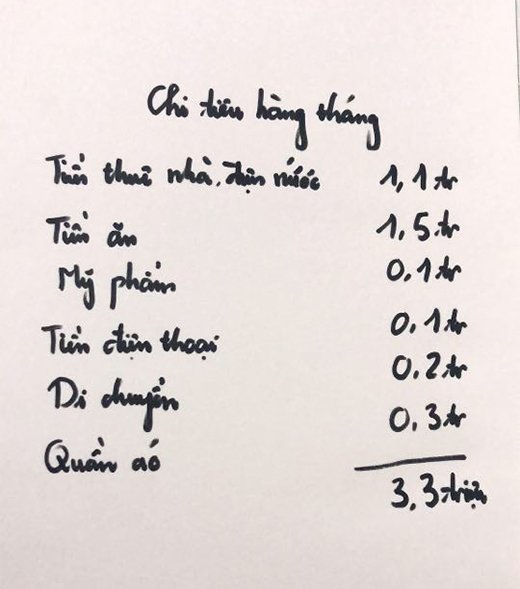 Chi tiêu hàng tháng
Tiền thuê nhà, điện nước 1,1 tr
Tiền ăn 1,5 tr
Mỹ phẩm 0,1 tr
Tiền điện thoại 0,1 tr
Di chuyển 0,2 tr
Quần áo 0,3 tr
3,3 triệu